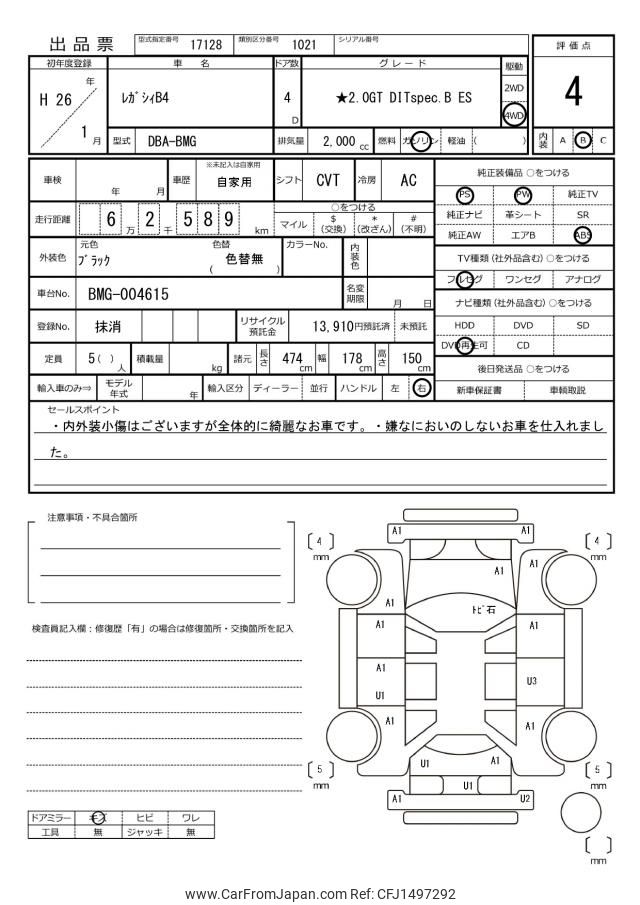 出品票 型式指定番号 17128 類別区分番号 1021 シリアル番号
評価点
4
内装 A B C
初年度登録 車名 ドア数 グレード 駆動
H 26 年 1 月 ﾚｶﾞｼｨB4 4 D ★2.0GT DITspec.B ES 2WD 4WD
型式 DBA-BMG 排気量 2,000 cc 燃料 ガソリン 軽油 ( )
※未記入は自家用
車検 年 月 車歴 自家用 シフト CVT 冷房 AC
純正装備品 ○をつける
PS PW 純正TV
純正ナビ 革シート SR
純正AW エアB ABS
走行距離 6 万 2 千 5 8 9 km
○をつける
マイル $(交換) *(改ざん) #(不明)
外装色 元色 ﾌﾞﾗｯｸ 色替 ( 色替無 ) カラーNo. 内装色
TV種類(社外品含む) ○をつける
フルセグ ワンセグ アナログ
車台No. BMG-004615 名変期限 月 日
ナビ種類(社外品含む) ○をつける
HDD DVD SD
DVD再生可 CD
登録No. 抹消 リサイクル預託金 13,910円預託済 未預託
定員 5( )人 積載量 kg 諸元 長さ 474 cm 幅 178 cm 高さ 150 cm
後日発送品 ○をつける
新車保証書 車輌取説
輸入車のみ⇒ モデル年式 年 輸入区分 ディーラー 並行 ハンドル 左 右
セールスポイント
・内外装小傷はございますが全体的に綺麗なお車です。・嫌なにおいのしないお車を仕入れまし
た。
注意事項・不具合箇所
検査員記入欄：修復歴「有」の場合は修復箇所・交換箇所を記入
A1 A1
[4] mm [4] mm
A1 A1
A1 ﾄﾋﾞ石
A1 A1
A1
U1 U3
A1 A1
U1 A1
[5] mm [5] mm
U1
A1 U2
[ ] mm
ドアミラー キズ ヒビ ワレ
工具 無 ジャッキ 無
www.CarFromJapan.com Ref: CFJ1497292